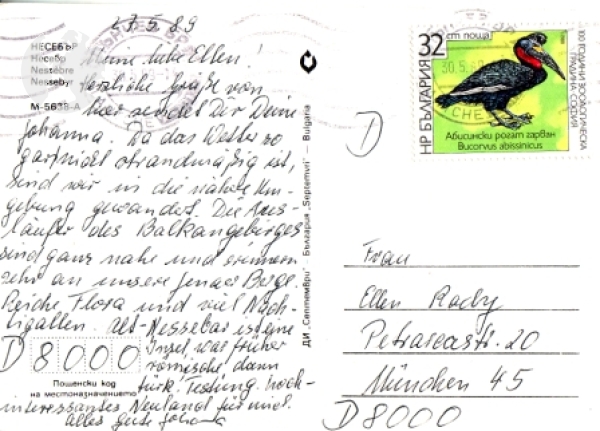 28.5.89
НЕСЕБЪР
Несебр
Nessèbre
Nessebyr
М-5638-А
Meine liebe Ellen!
Herzliche Grüße von
hier sendet Dir Deine
Johanna. Da das Wetter so
gar nicht strandmäßig ist,
sind wir in die nähere Um-
gebung gewandert. Die Aus-
läufer des Balkangebirges
sind ganz nahe und erinnern
sehr an unsere Jenaer Berge.
Reiche Flora und viel Nach-
tigallen. Alt-Nessebar ist eine
Insel, war früher
römische, dann
türk. Festung. Hoch-
interessantes Neuland für mich.
Alles Gute Johanna
D 8000
Пощенски код
на местоназначението
ДИ „Септември" - България „Septemvri" - Bulgaria
32 ст поща
НР БЪЛГАРИЯ
100 ГОДИНИ ЗООЛОГИЧЕСКА
ГРАДИНА СОФИЯ
Абисински рогат гарван
Bucorvus abissinicus
30.5.89
D
Frau
Ellen Rady
Petrarcastr. 20
München 45
D 8000